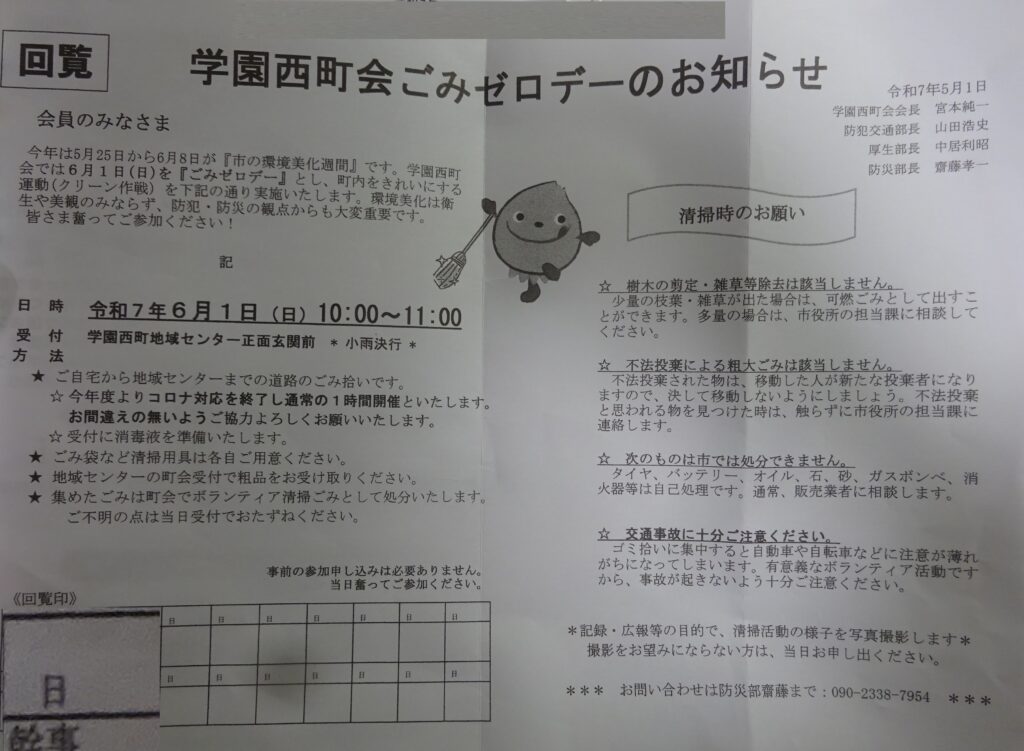 回覧
学園西町会ごみゼロデーのお知らせ
令和7年5月1日
学園西町会会長 宮本純一
防犯交通部長 山田浩史
厚生部長 中居利昭
防災部長 齋藤孝一
会員のみなさま
今年は5月25日から6月8日が『市の環境美化週間』です。学園西町
会では6月1日(日)を『ごみゼロデー』とし、町内をきれいにする
運動(クリーン作戦)を下記の通り実施いたします。環境美化は衛
生や美観のみならず、防犯・防災の観点からも大変重要です。
皆さま奮ってご参加ください！
記
日 時 令和7年6月1日（日）10:00～11:00
受 付 学園西町地域センター正面玄関前 ＊小雨決行＊
方 法
★ ご自宅から地域センターまでの道路のごみ拾いです。
☆ 今年度よりコロナ対応を終了し通常の1時間開催といたします。
お間違えの無いようご協力よろしくお願いいたします。
☆ 受付に消毒液を準備いたします。
★ ごみ袋など清掃用具は各自ご用意ください。
★ 地域センターの町会受付で粗品をお受け取りください。
★ 集めたごみは町会でボランティア清掃ごみとして処分いたします。
ご不明の点は当日受付でおたずねください。
事前の参加申し込みは必要ありません。
当日奮ってご参加ください。
《回覧印》
日 日 日 日 日 日 日
日 日 日 日 日 日 日
日
清掃時のお願い
☆ 樹木の剪定・雑草等除去は該当しません。
少量の枝葉・雑草が出た場合は、可燃ごみとして出すこ
とができます。多量の場合は、市役所の担当課に相談して
ください。
☆ 不法投棄による粗大ごみは該当しません。
不法投棄された物は、移動した人が新たな投棄者になり
ますので、決して移動しないようにしましょう。不法投棄
と思われる物を見つけた時は、触らずに市役所の担当課に
連絡します。
☆ 次のものは市では処分できません。
タイヤ、バッテリー、オイル、石、砂、ガスボンベ、消
火器等は自己処理です。通常、販売業者に相談します。
☆ 交通事故に十分ご注意ください。
ゴミ拾いに集中すると自動車や自転車などに注意が薄れ
がちになってしまいます。有意義なボランティア活動です
から、事故が起きないよう十分ご注意ください。
＊記録・広報等の目的で、清掃活動の様子を写真撮影します＊
撮影をお望みにならない方は、当日お申し出ください。
＊＊＊ お問い合わせは防災部齋藤まで：090-2338-7954 ＊＊＊